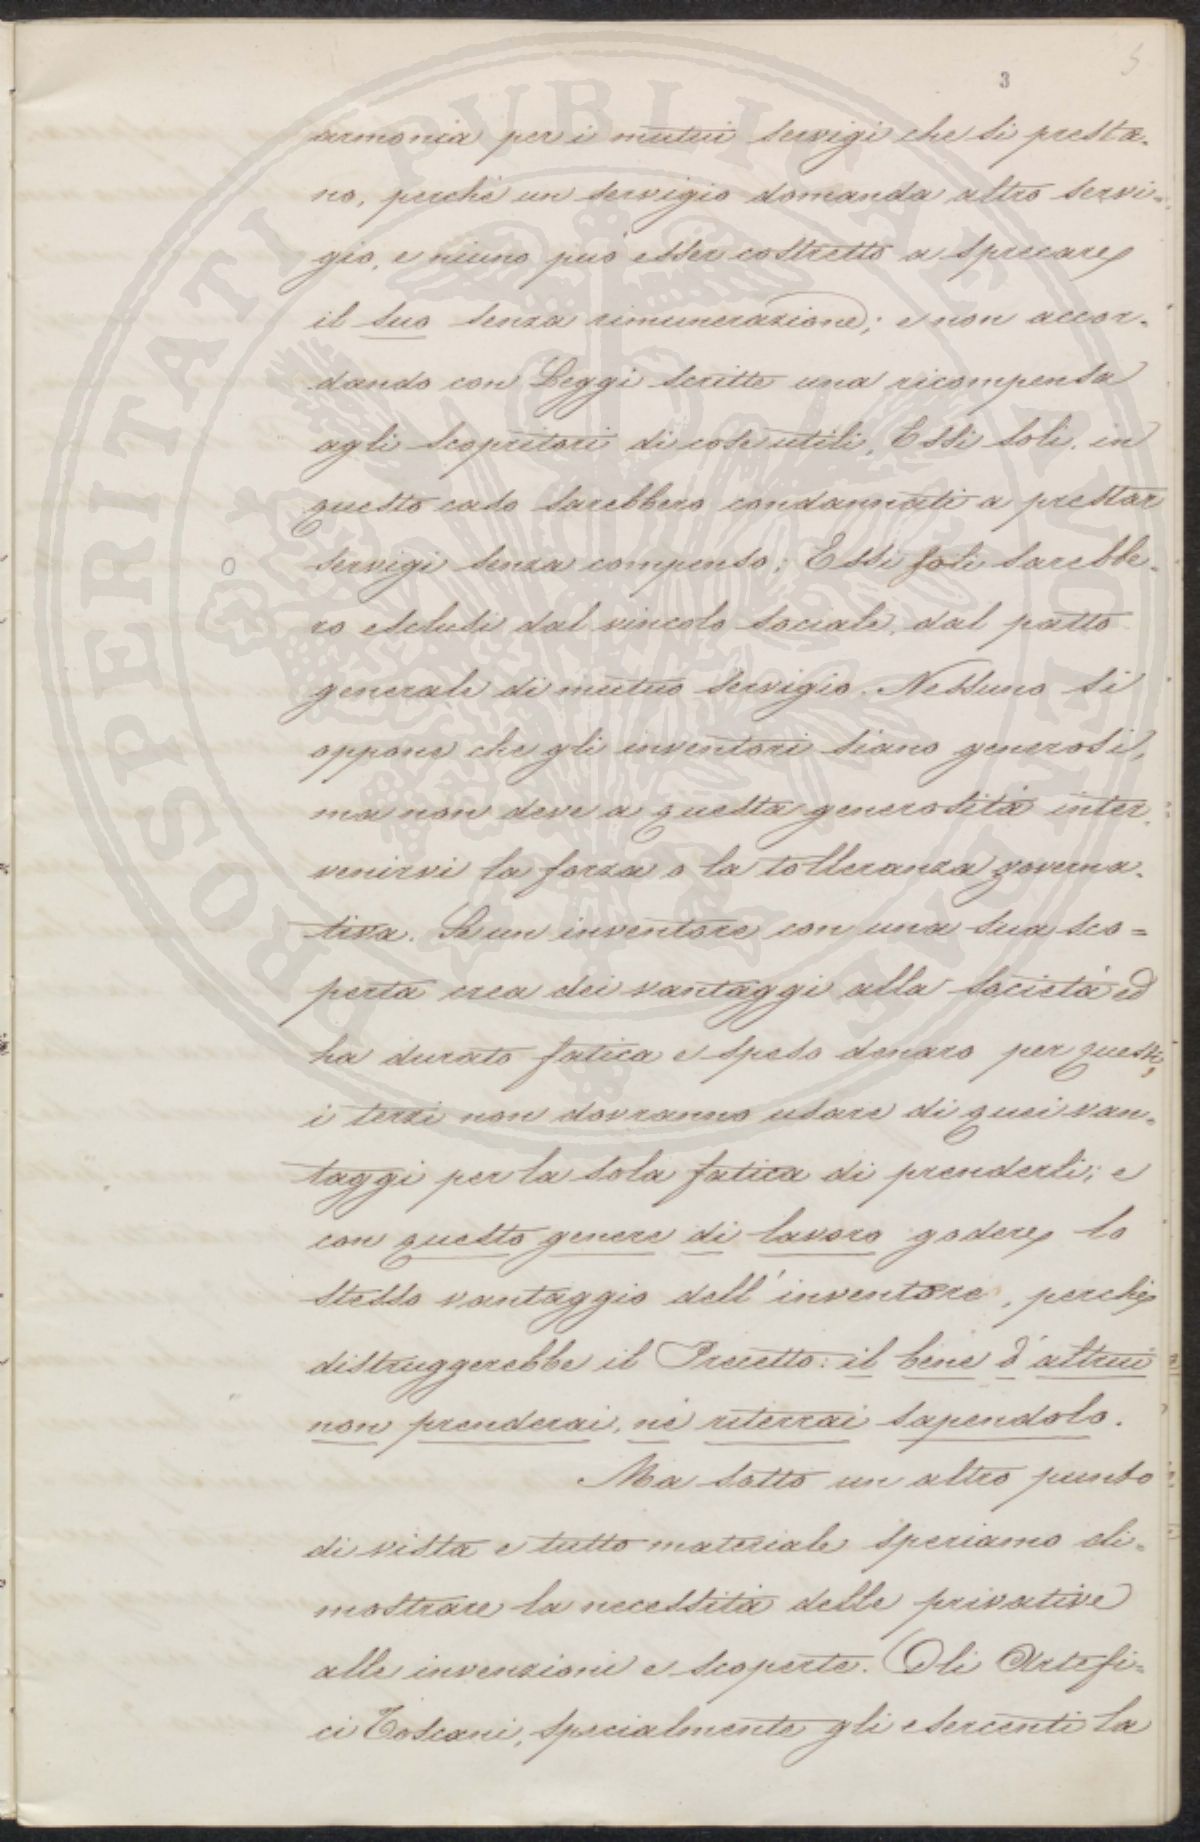 5
3
armonia per i mutui servigi che si presta-
no, perché un servigio domanda altro servi-
gio, e niuno può esser costretto a sprecare
il suo senza rimunerazione; e non accor-
dando con Leggi scritte una ricompensa
agli scopritori di cose utili, Essi soli, in
questo caso sarebbero condannati a prestar
servigi senza compenso; Essi soli sarebbe-
ro esclusi dal vincolo sociale, dal patto
generale di mutuo servigio. Nessuno si
oppone che gli inventori siano generosi,
ma non deve a questa generosità inter-
venirvi la forza o la tolleranza governa-
tiva. Se un inventore con una sua sco=
perta crea dei vantaggi alla Società ed
ha durato fatica e speso denaro per questi,
i terzi non dovranno usare di quei van-
taggi per la sola fatica di prenderli; e
con questo genere di lavoro godere lo
stesso vantaggio dell'inventore, perché
distruggerebbe il Precetto: il bene d'altrui
non prenderai, né riterrai sapendolo.
Ma sotto un altro punto
di vista e tutto materiale speriamo di-
mostrare la necessità delle privative
alle invenzioni e scoperte. Gli Artefi-
ci Toscani, specialmente gli esercenti la
PUBLICAE FLORENTINAE PROSPERITATI